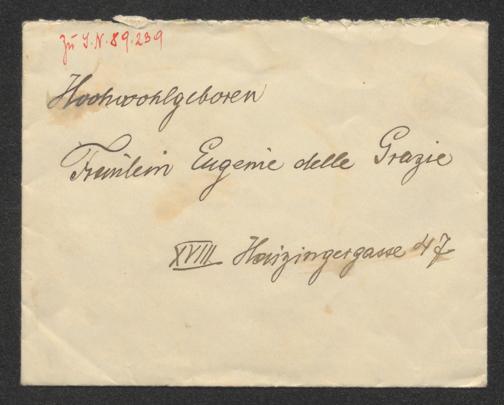 Zu I.N. 89.239
Hochwohlgeboren
Fräulein Eugenie delle Grazie
XVIII Haizingergasse 47